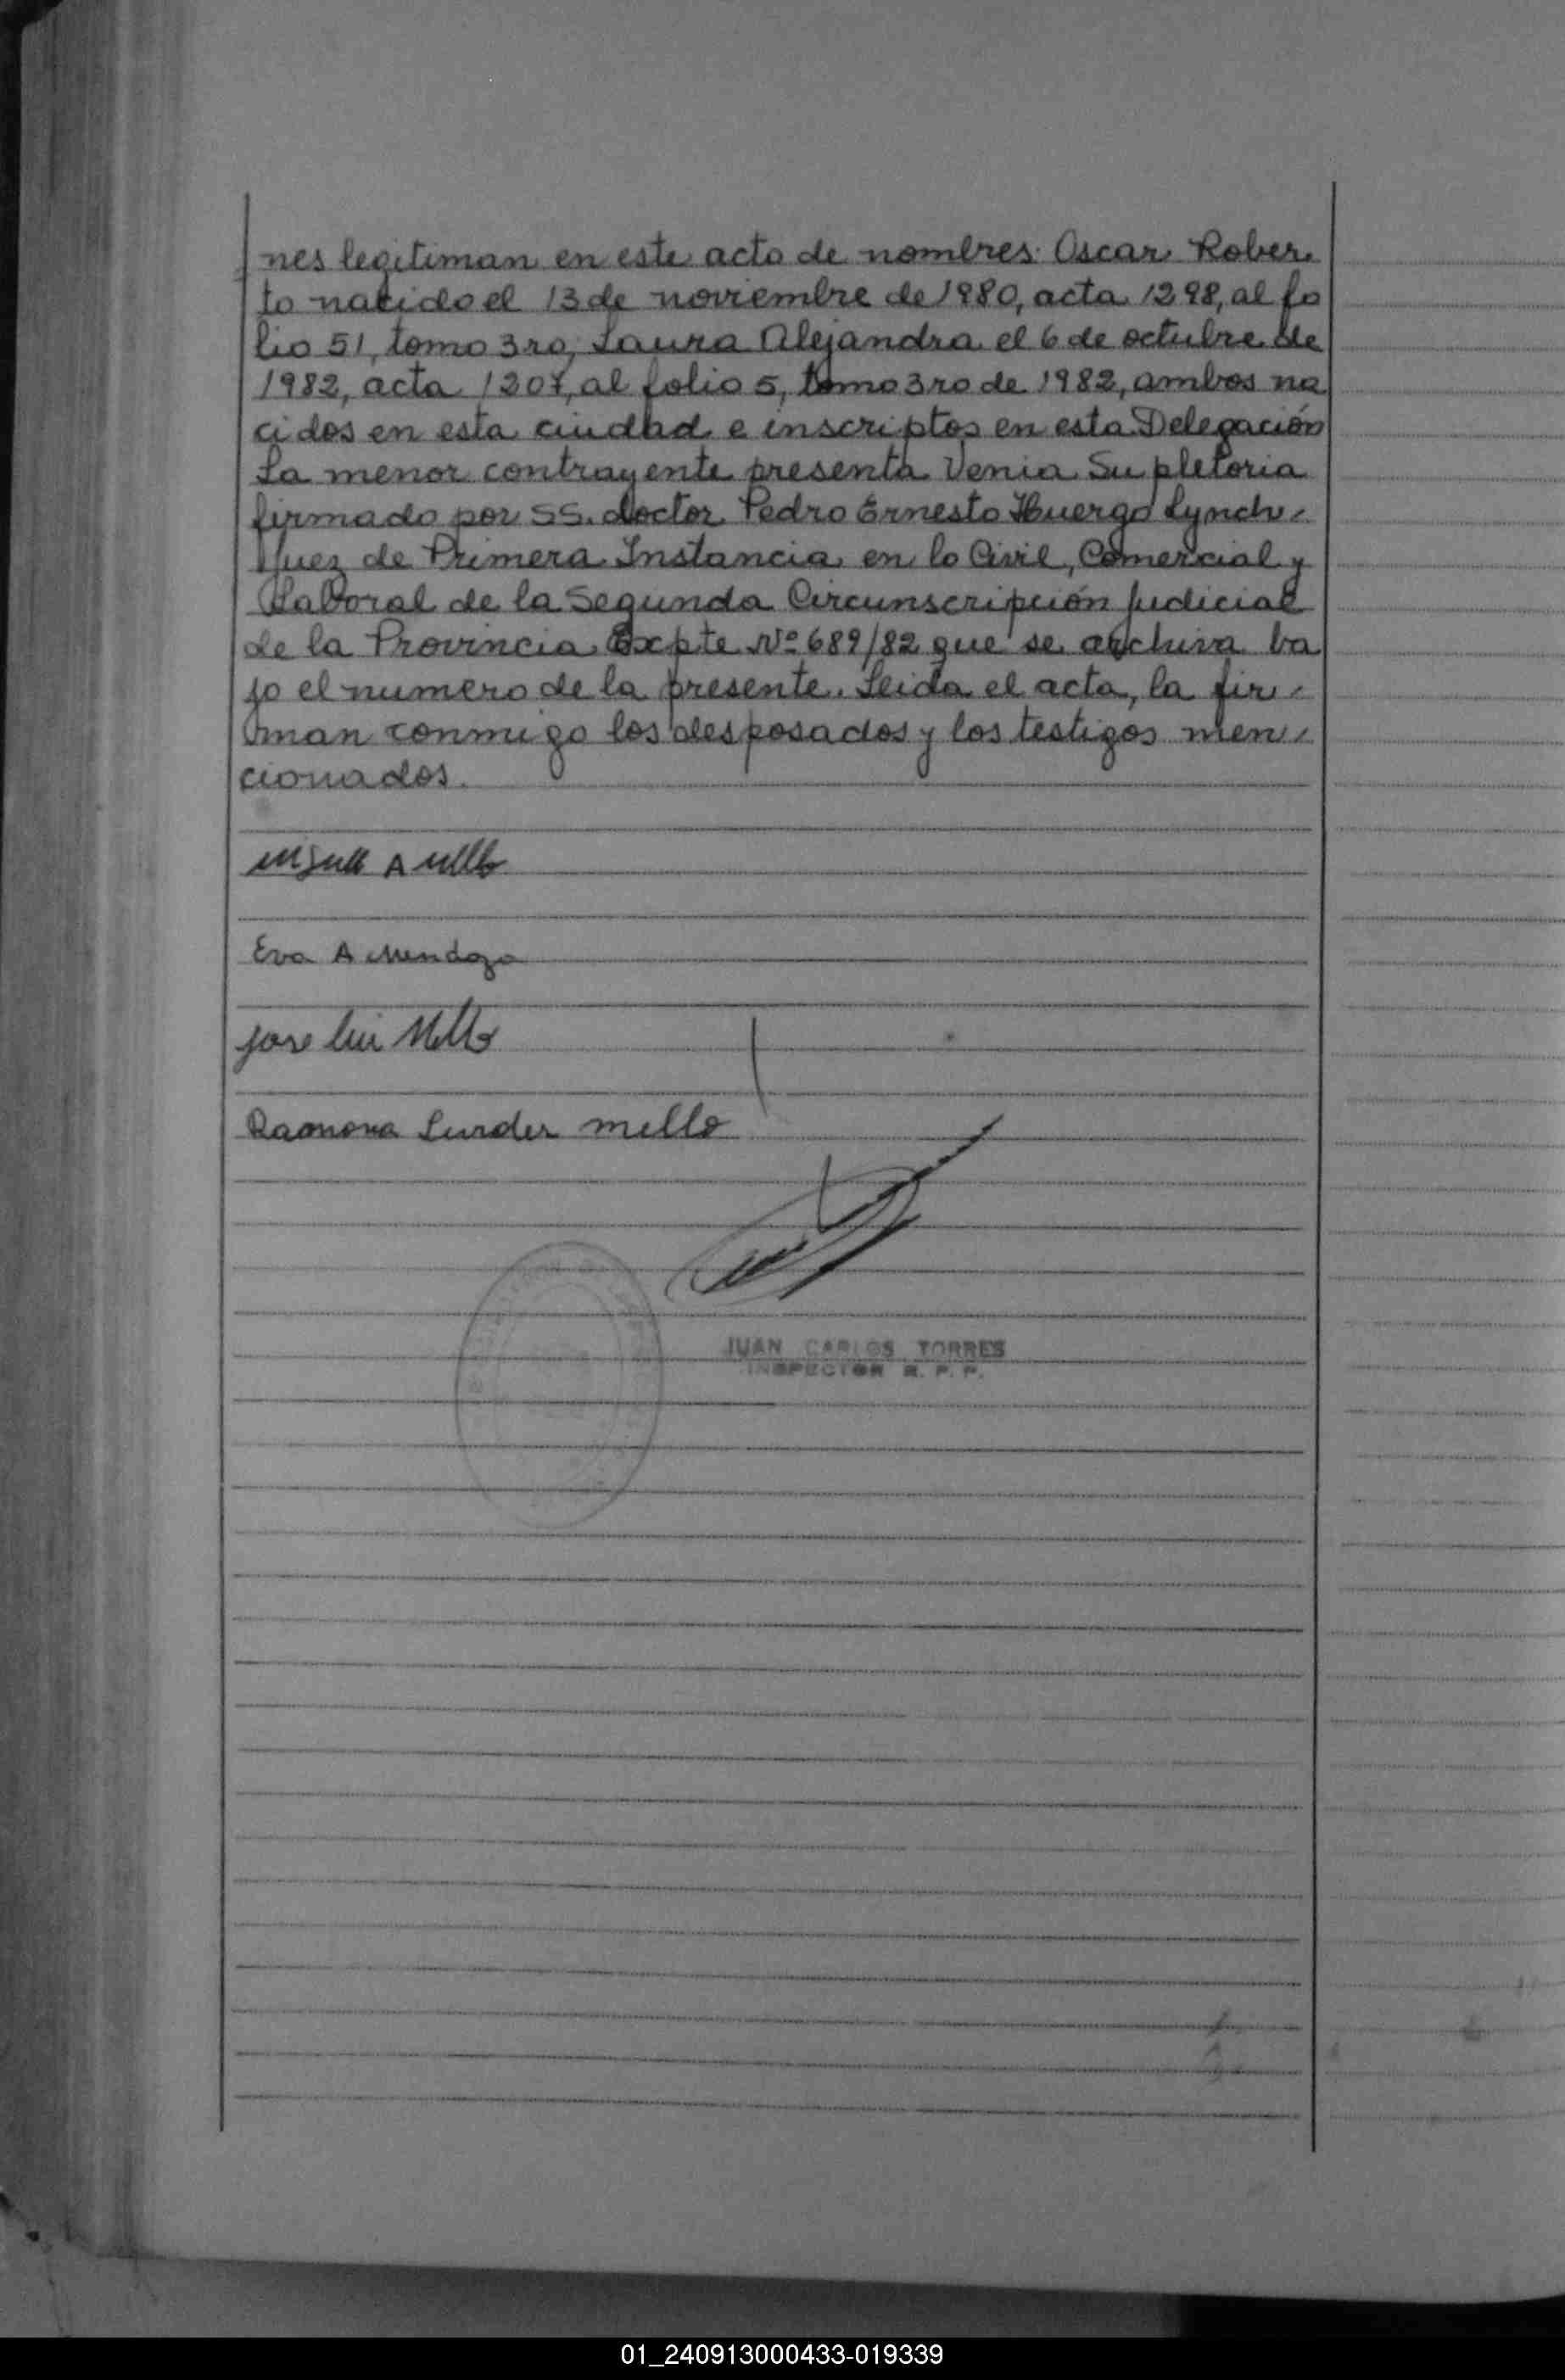 nes legitiman en este acto de nombres: Oscar Rober
to nacido el 13 de noviembre de 1980, acta 1298, al fo
lio 51, tomo 3ro, Laura Alejandra el 6 de octubre de
1982, acta 1207, al folio 5, tomo 3ro de 1982, ambos na
cidos en esta ciudad e inscriptos en esta Delegación
La menor contrayente presenta Venia Supletoria
firmado por SS. doctor Pedro Ernesto Huergo Lynch-
Juez de Primera Instancia en lo Civil, Comercial y
Laboral de la Segunda Circunscripción Judicial
de la Provincia Expte Nº 689/82 que se archiva ba
jo el numero de la presente. Leida el acta, la fir-
man conmigo los desposados y los testigos men-
cionados.
A
Eva A Mendoza
Jose Luis Mello
Ramona Lurdes mello
JUAN CARLOS TORRES
INSPECTOR R. P. P.
01_240913000433-019339